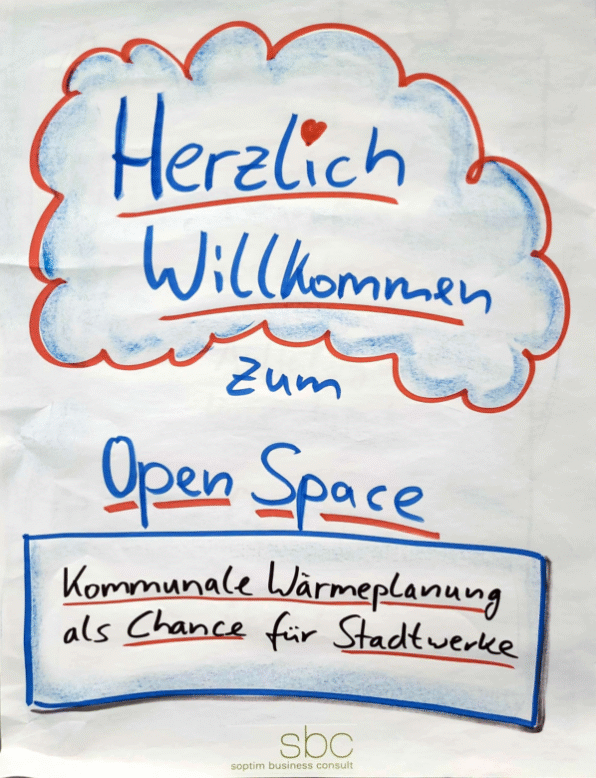 Herzlich
Willkommen
zum
Open Space
Kommunale Wärmeplanung
als Chance für Stadtwerke
sbc
soptim business consult